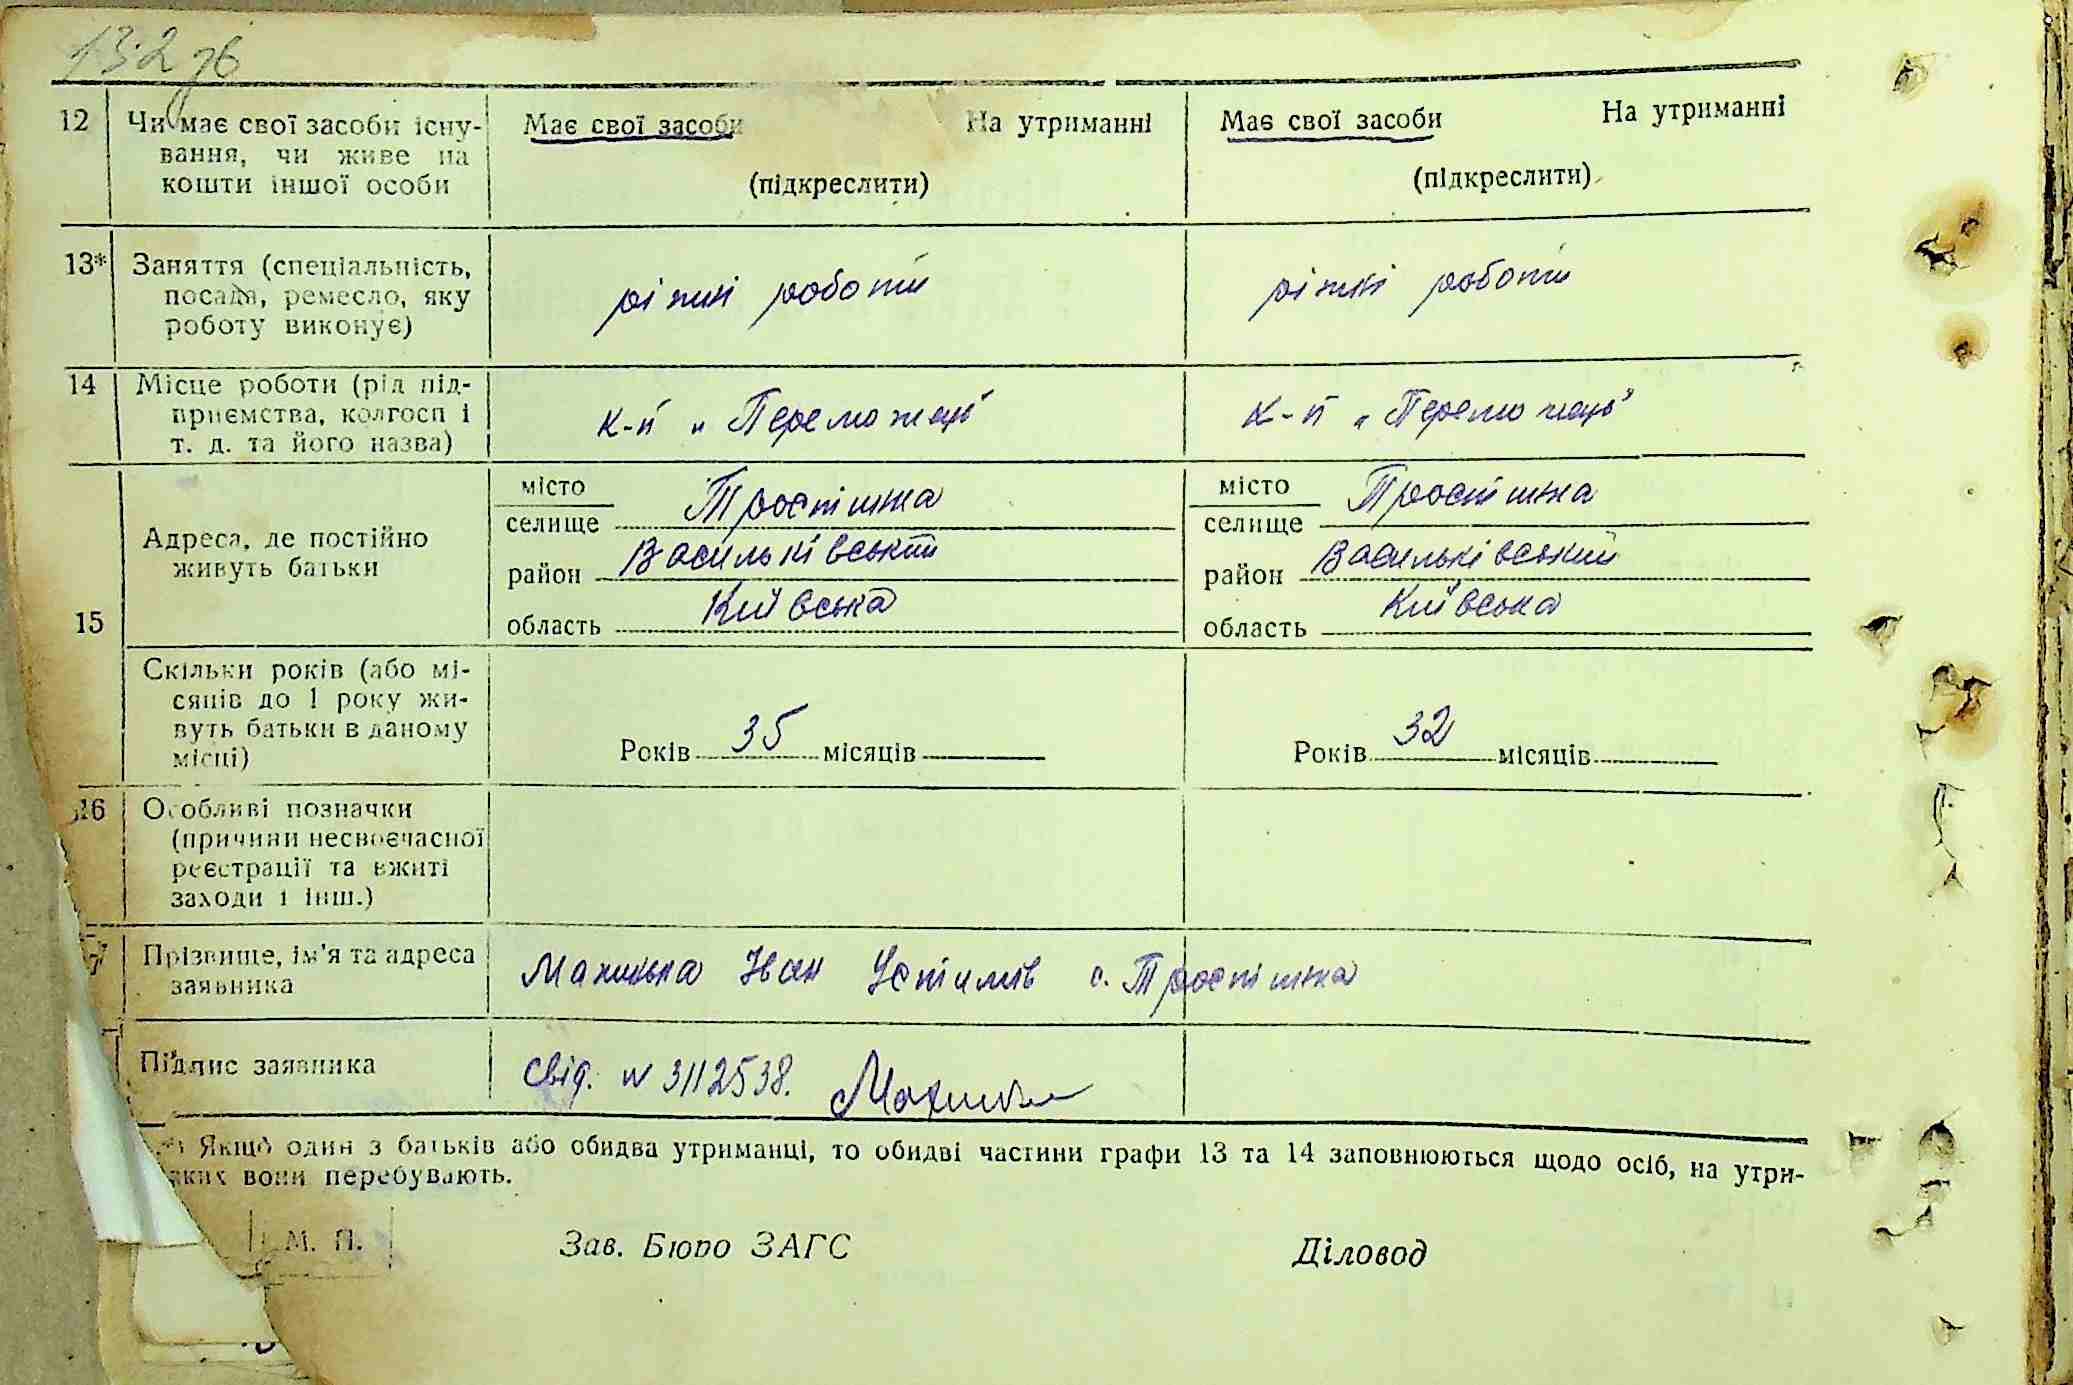 132 зв
12 Чи має свої засоби існу- Має свої засоби На утриманні Має свої засоби На утриманні
вання, чи живе на
кошти іншої особи (підкреслити) (підкреслити)
13* Заняття (спеціальність,
посада, ремесло, яку різні роботи різні роботи
роботу виконує)
14 Місце роботи (рід під-
приємства, колгосп і к-п „Переможець" к-п „Переможець"
т. д. та його назва)
місто Тростінка місто Тростінка
селище селище
Адреса, де постійно
живуть батьки район Васильківський район Васильківський
15 область Київська область Київська
Скільки років (або мі-
сяців до 1 року жи-
вуть батьки в даному
місці) Років 35 місяців Років 32 місяців
16 Особливі позначки
(причини несвоєчасної
реєстрації та вжиті
заходи і інш.)
7 Прізвище, ім'я та адреса
заявника Махинька Іван Устимів с. Тростінка
Підпис заявника Свід. N 3112538.
*) Якщо один з батьків або обидва утриманці, то обидві частини графи 13 та 14 заповнюються щодо осіб, на утри-
яких вони перебувають.
М. П. Зав. Бюро ЗАГС Діловод